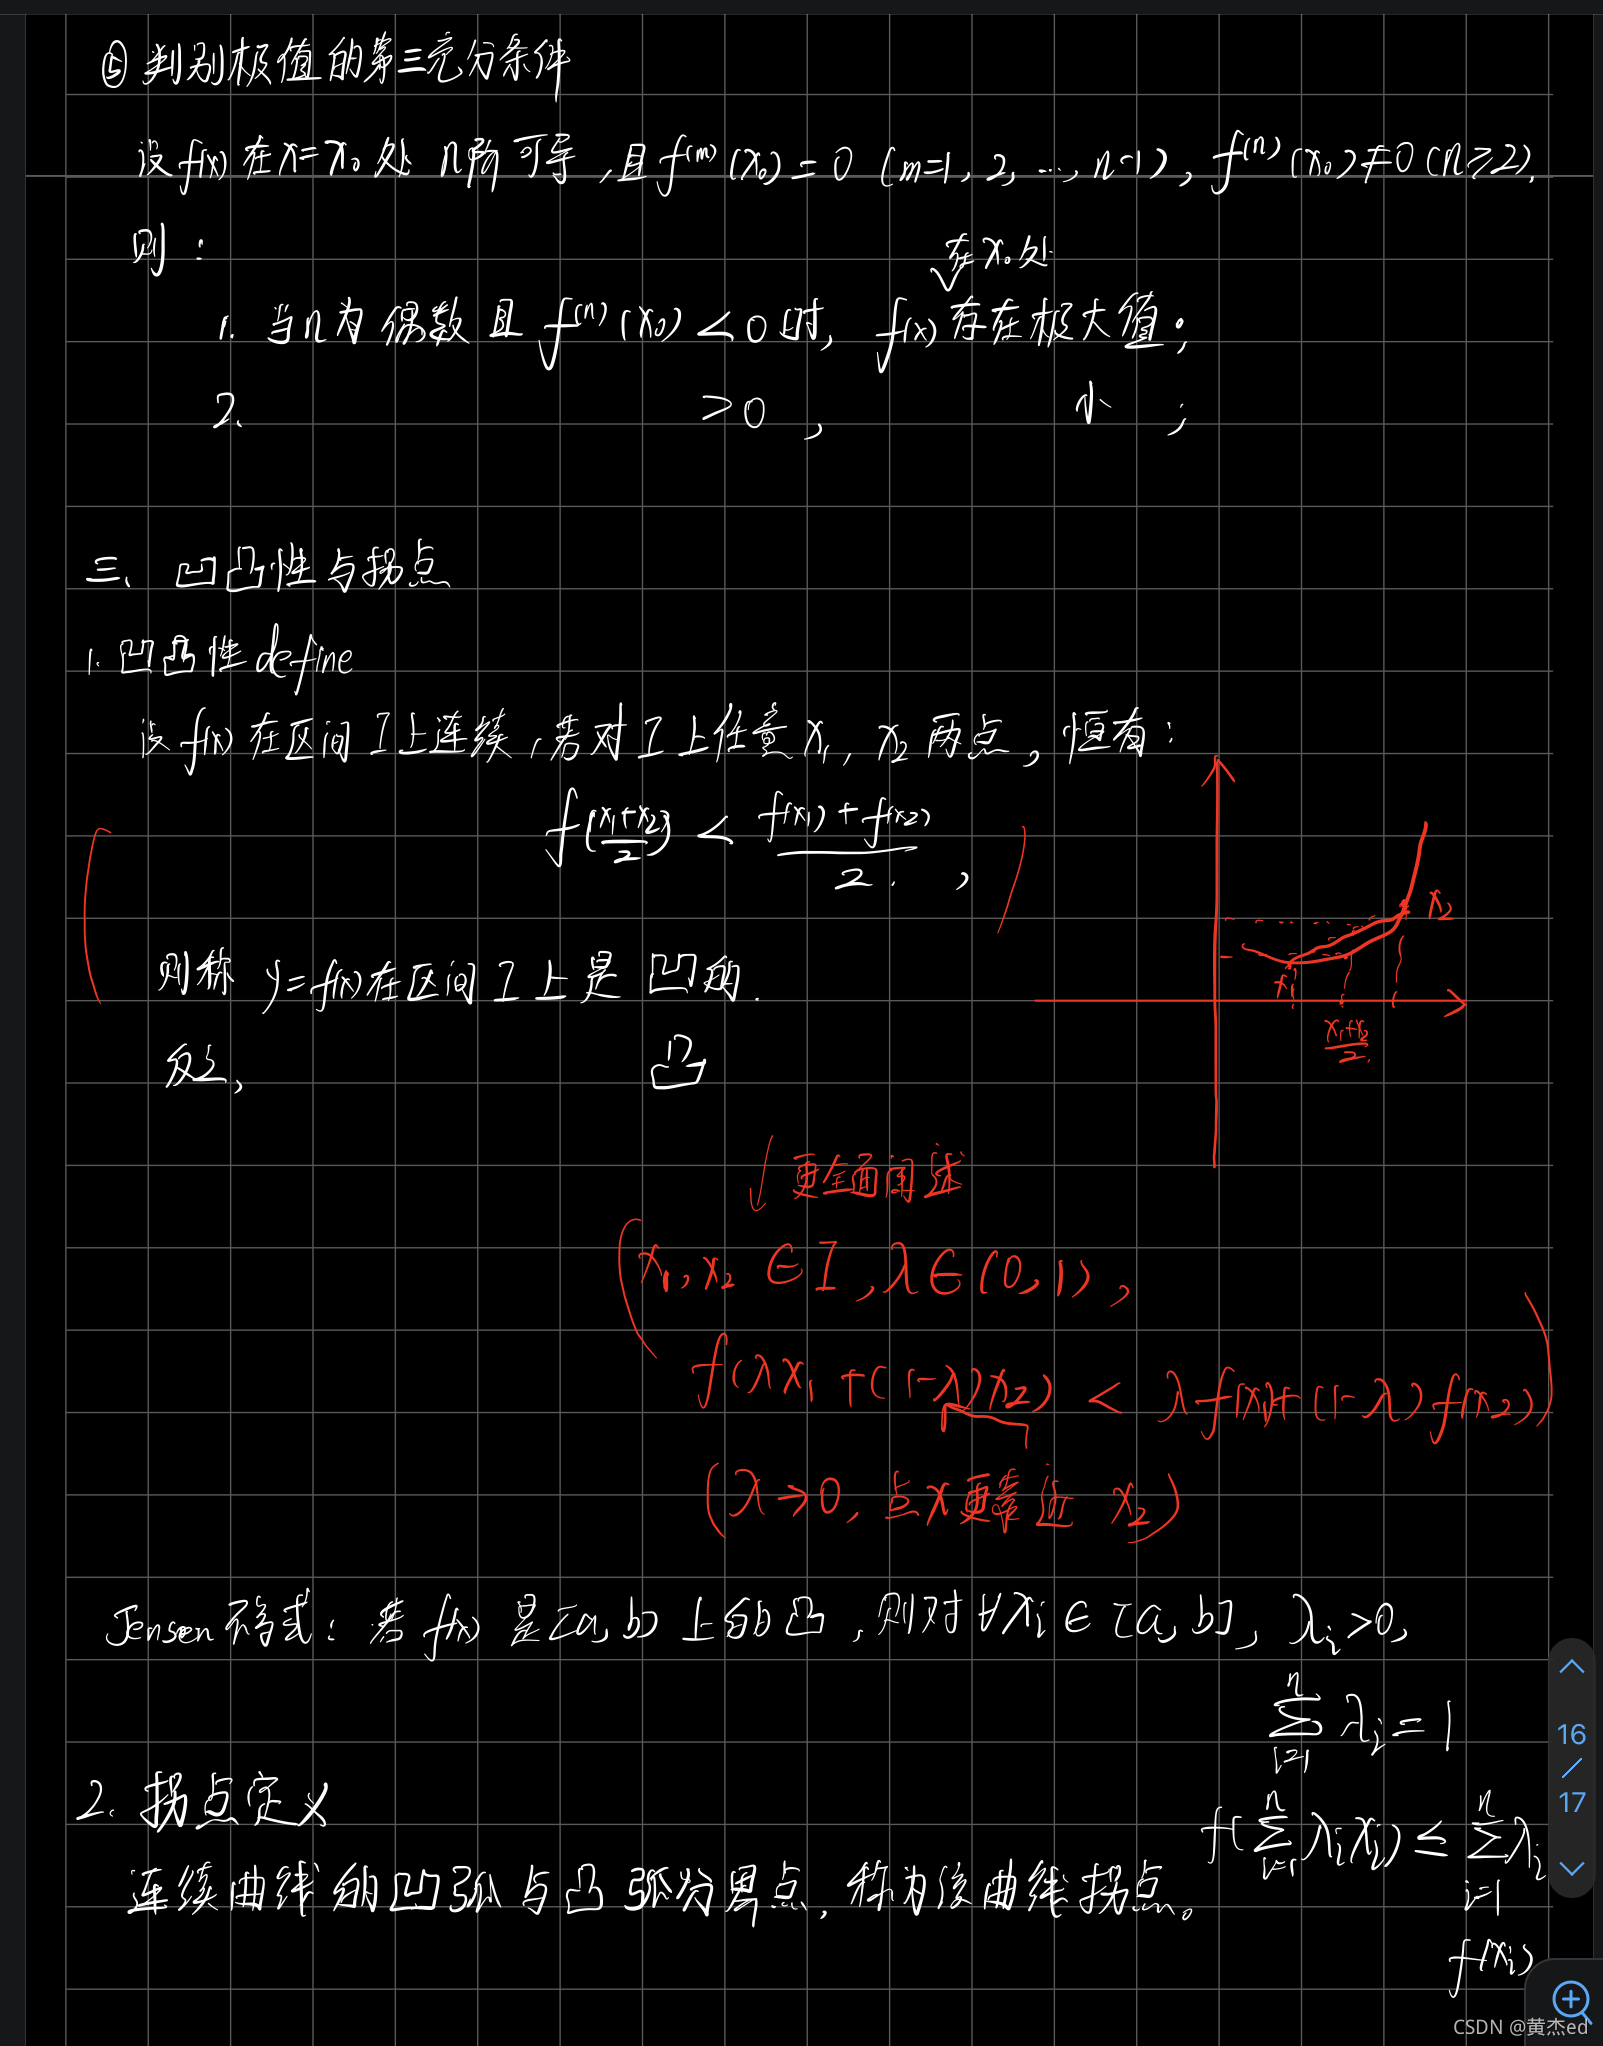 ⑤ 判别极值的第三充分条件
设 f(x) 在 x=x₀ 处 n阶可导，且 f⁽ᵐ⁾(x₀) = 0 (m=1, 2, …, n-1), f⁽ⁿ⁾(x₀)≠0 (n≥2),
则：
在 x₀ 处
1. 当n为偶数且 f⁽ⁿ⁾(x₀) < 0 时, f(x) 存在极大值；
2. >0 , 小 ;
三、凹凸性与拐点
1. 凹凸性 define
设 f(x) 在区间 I 上连续，若对 I 上任意 x₁, x₂ 两点，恒有：
f((x₁+x₂)/2) < (f(x₁) + f(x₂))/2 ,
x₂
x₁
(x₁+x₂)/2
则称 y=f(x) 在区间 I 上是 凹的.
反之, 凸
更全面阐述
(x₁, x₂ ∈ I, λ∈(0,1),
f(λx₁ + (1-λ)x₂) < λf(x₁)+(1-λ)f(x₂))
(λ→0, 点x更靠近 x₂)
Jensen 不等式：若 f(x) 是 [a, b] 上的凸，则对 ∀xᵢ ∈ [a, b], λᵢ>0,
∑ⁿᵢ₌₁ λᵢ = 1
2. 拐点定义
f(∑ⁿᵢ₌₁ λᵢxᵢ) ≤ ∑ⁿᵢ₌₁ λᵢ
连续曲线的凹弧与凸弧分界点，称为该曲线拐点。
f(xᵢ)
16
/
17
CSDN @黄杰ed